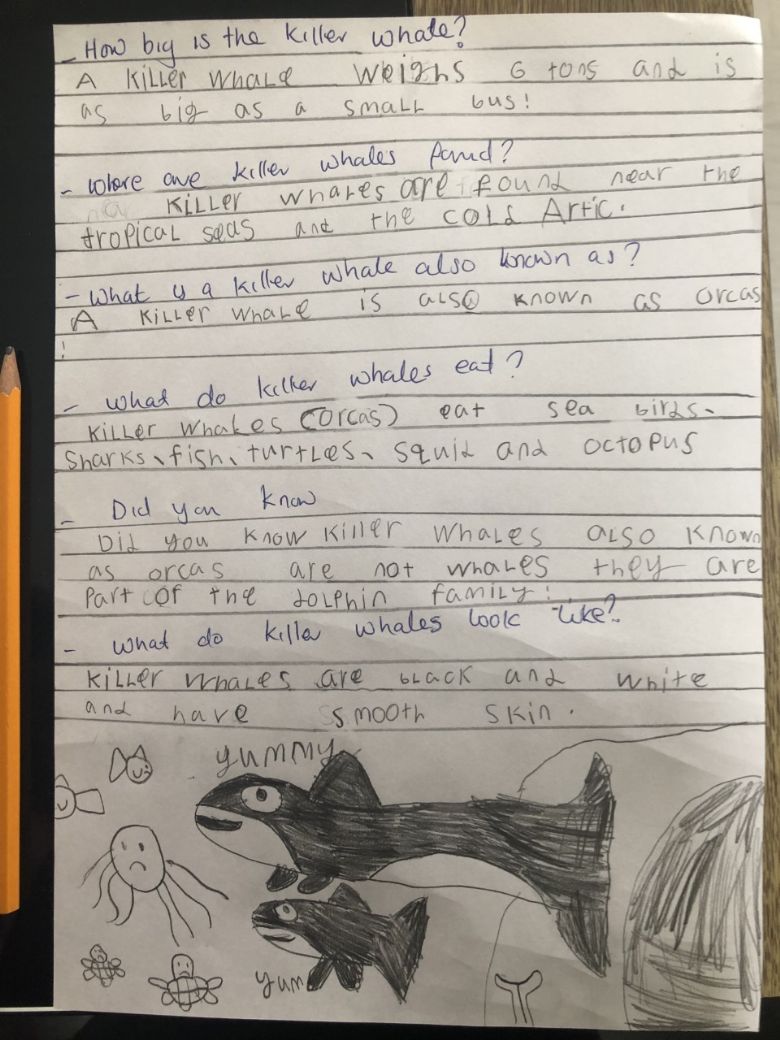 - How big is the killer whale?
A killer whale weighs 6 tons and is
as big as a small bus!
- Where are killer whales found?
killer whales are found near the
tropical seas and the cold Artic.
- What is a killer whale also known as?
A killer whale is also known as orcas
!
- what do killer whales eat?
killer whales (orcas) eat sea birds,
Sharks, fish, turtles, squid and octopus
- Did you know
Did you know killer whales also known
as orcas are not whales they are
part of the dolphin family!
- what do killer whales look like?
killer whales are black and white
and have smooth skin.
yummy
yum